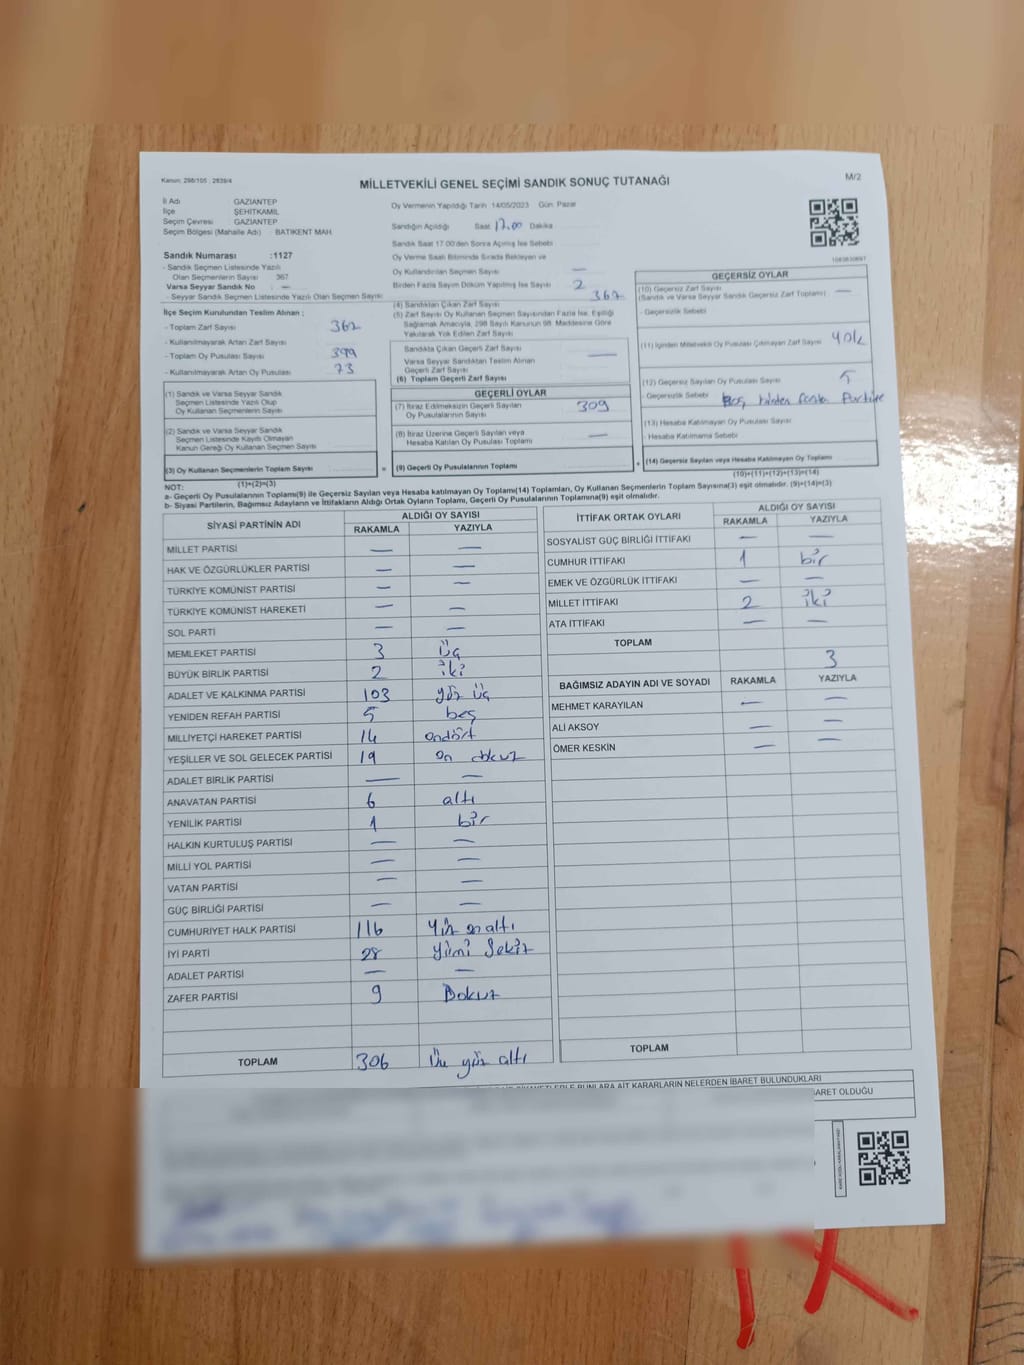 Kanun: 298/105 , 2839/4
MİLLETVEKİLİ GENEL SEÇİMİ SANDIK SONUÇ TUTANAĞI
M/2
İl Adı GAZİANTEP
İlçe ŞEHİTKAMİL
Seçim Çevresi GAZİANTEP
Seçim Bölgesi (Mahalle Adı) : BATIKENT MAH.
Oy Vermenin Yapıldığı Tarih 14/05/2023 Gün: Pazar
Sandığın Açıldığı Saat 17.00 Dakika
Sandık Saat 17.00'den Sonra Açılmış İse Sebebi
Oy Verme Saati Bitiminde Sırada Bekleyen ve
Oy Kullandırılan Seçmen Sayısı —
Birden Fazla Sayım Döküm Yapılmış İse Sayısı 2
Sandık Numarası :1127
- Sandık Seçmen Listesinde Yazılı
Olan Seçmenlerin Sayısı 367
Varsa Seyyar Sandık No —
- Seyyar Sandık Seçmen Listesinde Yazılı Olan Seçmen Sayısı:
İlçe Seçim Kurulundan Teslim Alınan ;
- Toplam Zarf Sayısı
- Kullanılmayarak Artan Zarf Sayısı
- Toplam Oy Pusulası Sayısı 399
- Kullanılmayarak Artan Oy Pusulası 73
(1) Sandık ve Varsa Seyyar Sandık
Seçmen Listesinde Yazılı Olup
Oy Kullanan Seçmenlerin Sayısı
(2) Sandık ve Varsa Seyyar Sandık
Seçmen Listesinde Kayıtlı Olmayan
Kanun Gereği Oy Kullanan Seçmen Sayısı
(3) Oy Kullanan Seçmenlerin Toplam Sayısı
(1)+(2)=(3)
(4) Sandıktan Çıkan Zarf Sayısı
(5) Zarf Sayısı Oy Kullanan Seçmen Sayısından Fazla İse, Eşitliği
Sağlamak Amacıyla, 298 Sayılı Kanunun 98. Maddesine Göre
Yakılarak Yok Edilen Zarf Sayısı
Sandıkta Çıkan Geçerli Zarf Sayısı
Varsa Seyyar Sandıktan Teslim Alınan
Geçerli Zarf Sayısı
(6) Toplam Geçerli Zarf Sayısı
GEÇERLİ OYLAR
(7) İtiraz Edilmeksizin Geçerli Sayılan
Oy Pusulalarının Sayısı 309
(8) İtiraz Üzerine Geçerli Sayılan veya
Hesaba Katılan Oy Pusulası Toplamı —
= (9) Geçerli Oy Pusulalarının Toplamı
GEÇERSİZ OYLAR
(10) Geçersiz Zarf Sayısı
(Sandık ve Varsa Seyyar Sandık Geçersiz Zarf Toplamı) —
- Geçersizlik Sebebi
(11) İçinden Milletvekili Oy Pusulası Çıkmayan Zarf Sayısı
(12) Geçersiz Sayılan Oy Pusulası Sayısı 5
- Geçersizlik Sebebi Boş birden fazla Partiye
(13) Hesaba Katılmayan Oy Pusulası Sayısı
- Hesaba Katılmama Sebebi
+ (14) Geçersiz Sayılan veya Hesaba Katılmayan Oy Toplamı
(10)+(11)+(12)+(13)=(14)
NOT:
a- Geçerli Oy Pusulalarının Toplamı(9) ile Geçersiz Sayılan veya Hesaba katılmayan Oy Toplamı(14) Toplamları, Oy Kullanan Seçmenlerin Toplam Sayısına(3) eşit olmalıdır. (9)+(14)=(3)
b- Siyasi Partilerin, Bağımsız Adayların ve İttifakların Aldığı Ortak Oyların Toplamı, Geçerli Oy Pusulalarının Toplamına(9) eşit olmalıdır.
SİYASİ PARTİNİN ADI ALDIĞI OY SAYISI
RAKAMLA YAZIYLA
MİLLET PARTİSİ — —
HAK VE ÖZGÜRLÜKLER PARTİSİ — —
TÜRKİYE KOMÜNİST PARTİSİ — —
TÜRKİYE KOMÜNİST HAREKETİ — —
SOL PARTİ — —
MEMLEKET PARTİSİ 3 Üç
BÜYÜK BİRLİK PARTİSİ 2 iki
ADALET VE KALKINMA PARTİSİ 103 yüz üç
YENİDEN REFAH PARTİSİ 5 beş
MİLLİYETÇİ HAREKET PARTİSİ 14 ondört
YEŞİLLER VE SOL GELECEK PARTİSİ 19 on dokuz
ADALET BİRLİK PARTİSİ — —
ANAVATAN PARTİSİ 6 altı
YENİLİK PARTİSİ 1 bir
HALKIN KURTULUŞ PARTİSİ — —
MİLLİ YOL PARTİSİ — —
VATAN PARTİSİ — —
GÜÇ BİRLİĞİ PARTİSİ — —
CUMHURİYET HALK PARTİSİ 116 Yüz on altı
İYİ PARTİ 28 yirmi Sekiz
ADALET PARTİSİ — —
ZAFER PARTİSİ 9 Dokuz
TOPLAM 306 Üç yüz altı
İTTİFAK ORTAK OYLARI ALDIĞI OY SAYISI
RAKAMLA YAZIYLA
SOSYALİST GÜÇ BİRLİĞİ İTTİFAKI — —
CUMHUR İTTİFAKI 1 bir
EMEK VE ÖZGÜRLÜK İTTİFAKI — —
MİLLET İTTİFAKI 2 iki
ATA İTTİFAKI — —
TOPLAM 3
BAĞIMSIZ ADAYIN ADI VE SOYADI RAKAMLA YAZIYLA
MEHMET KARAYILAN — —
ALİ AKSOY — —
ÖMER KESKİN — —
TOPLAM
BUNLARA AİT KARARLARIN NELERDEN İBARET BULUNDUKLARI
BARET OLDUĞU